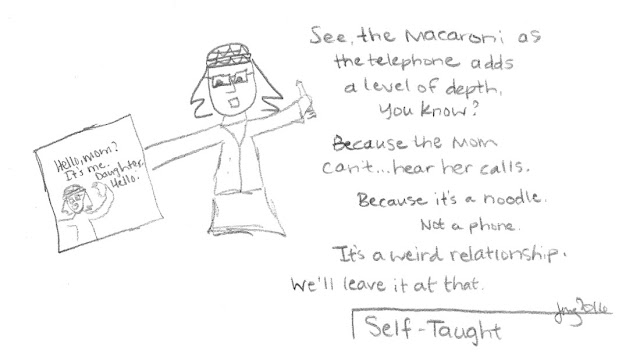 Hello, mom?
It's me.
Daughter.
Hello.
See, the Macaroni as
the telephone adds
a level of depth,
you know?
Because the Mom
can't...hear her calls.
Because it's a noodle.
Not a phone.
It's a weird relationship.
We'll leave it at that.
Self-Taught
2016